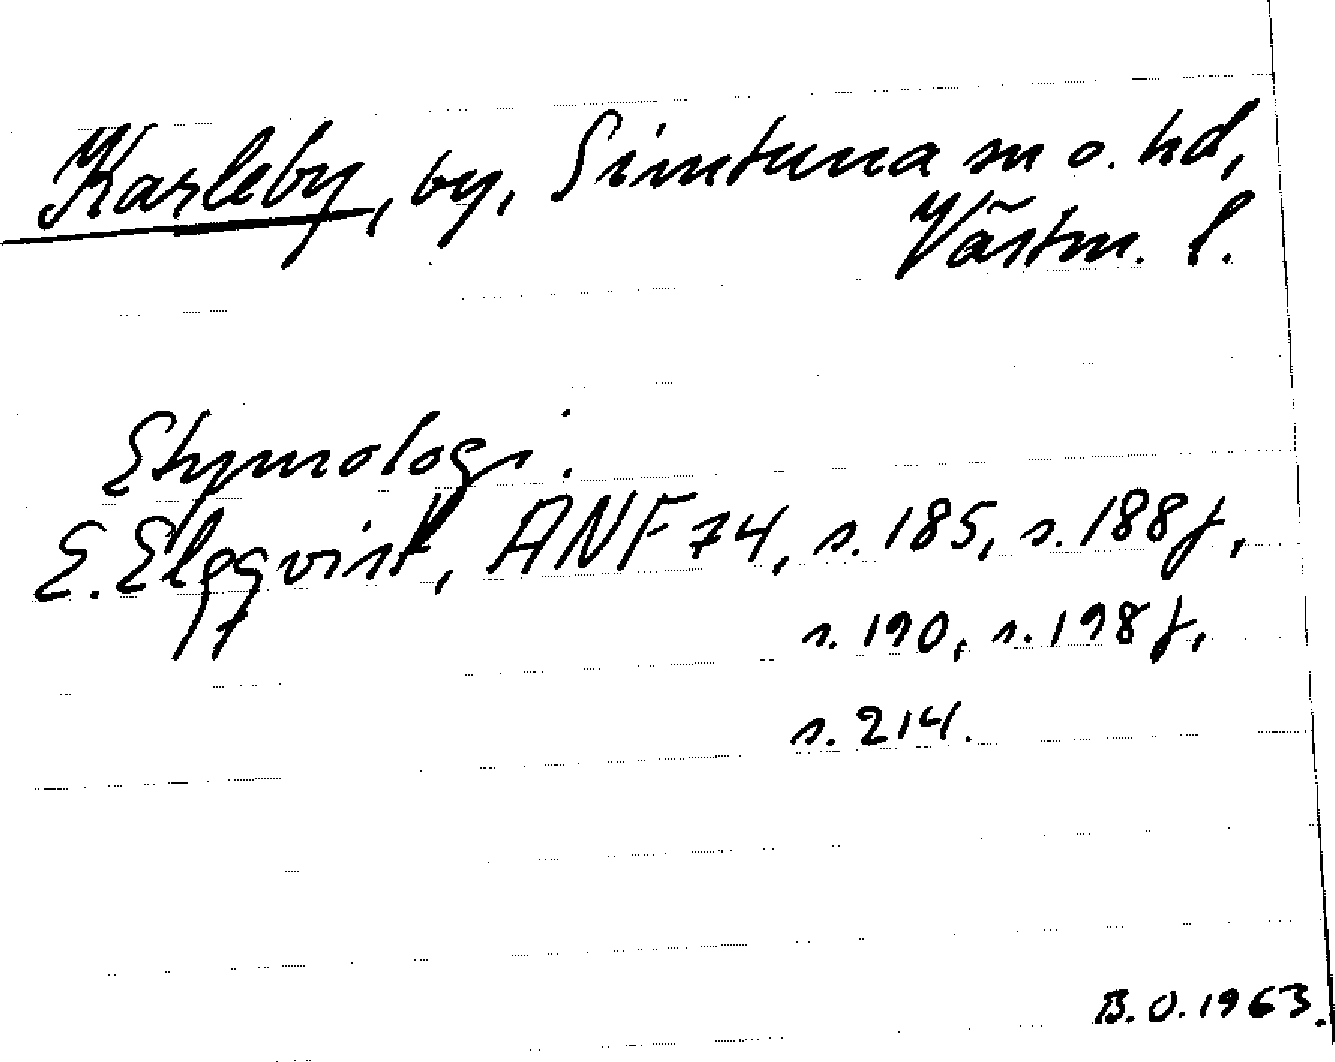 Karleby, by, Simtuna sn o. hd,
Västm. l.
Etymologi:
E. Elgqvist, ANF 74, s. 185, s. 188 f,
s. 190, s. 198 f,
s. 214.
B.O. 1963.